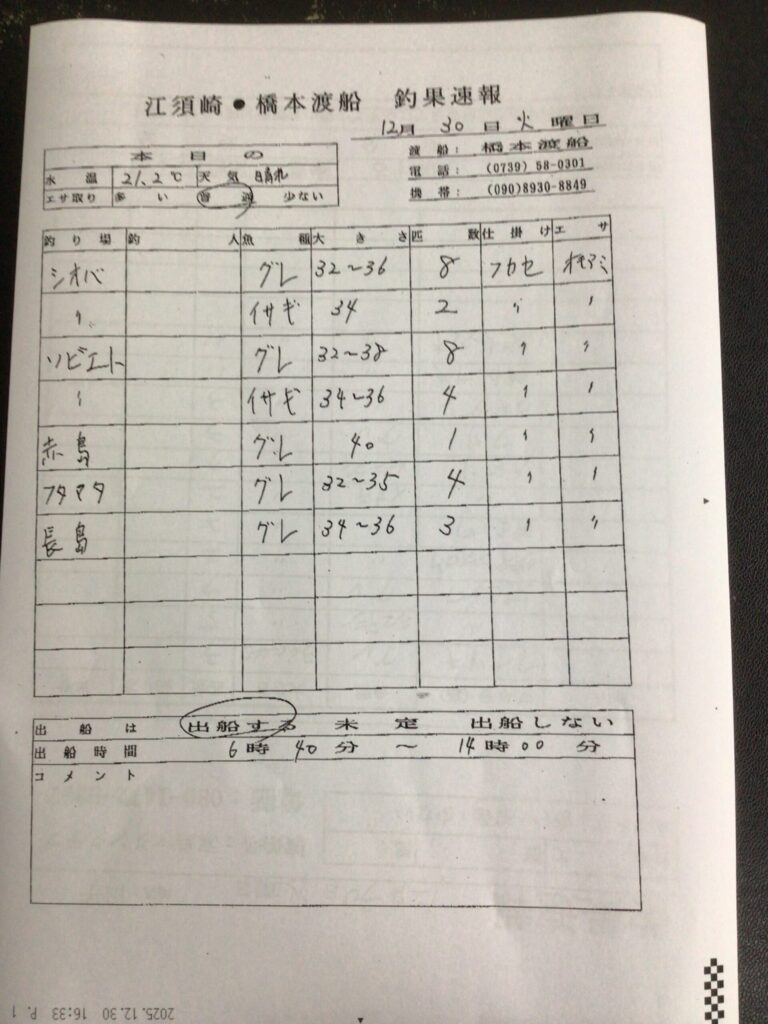 江須崎●橋本渡船 釣果速報
12月 30日 火曜日
渡船: 橋本渡船
電話: (0739) 58-0301
機帯: (090)8930-8849
本日の
水温 21.2℃ 天気 晴れ
エサ取り 多い 普通 少ない
釣り場 釣人 魚種 大きさ 匹数 仕掛け エサ
シオバ グレ 32〜36 8 フカセ オキアミ
〃 イサギ 34 2 〃 〃
ソビエト グレ 32〜38 8 〃 〃
〃 イサギ 34〜36 4 〃 〃
赤島 グレ 40 1 〃 〃
フタマタ グレ 32〜35 4 〃 〃
長島 グレ 34〜36 3 〃 〃
出船は 出船する 未定 出船しない
出船時間 6時 40分 〜 14時00分
コメント
2025.12.30 16:33 P. 1